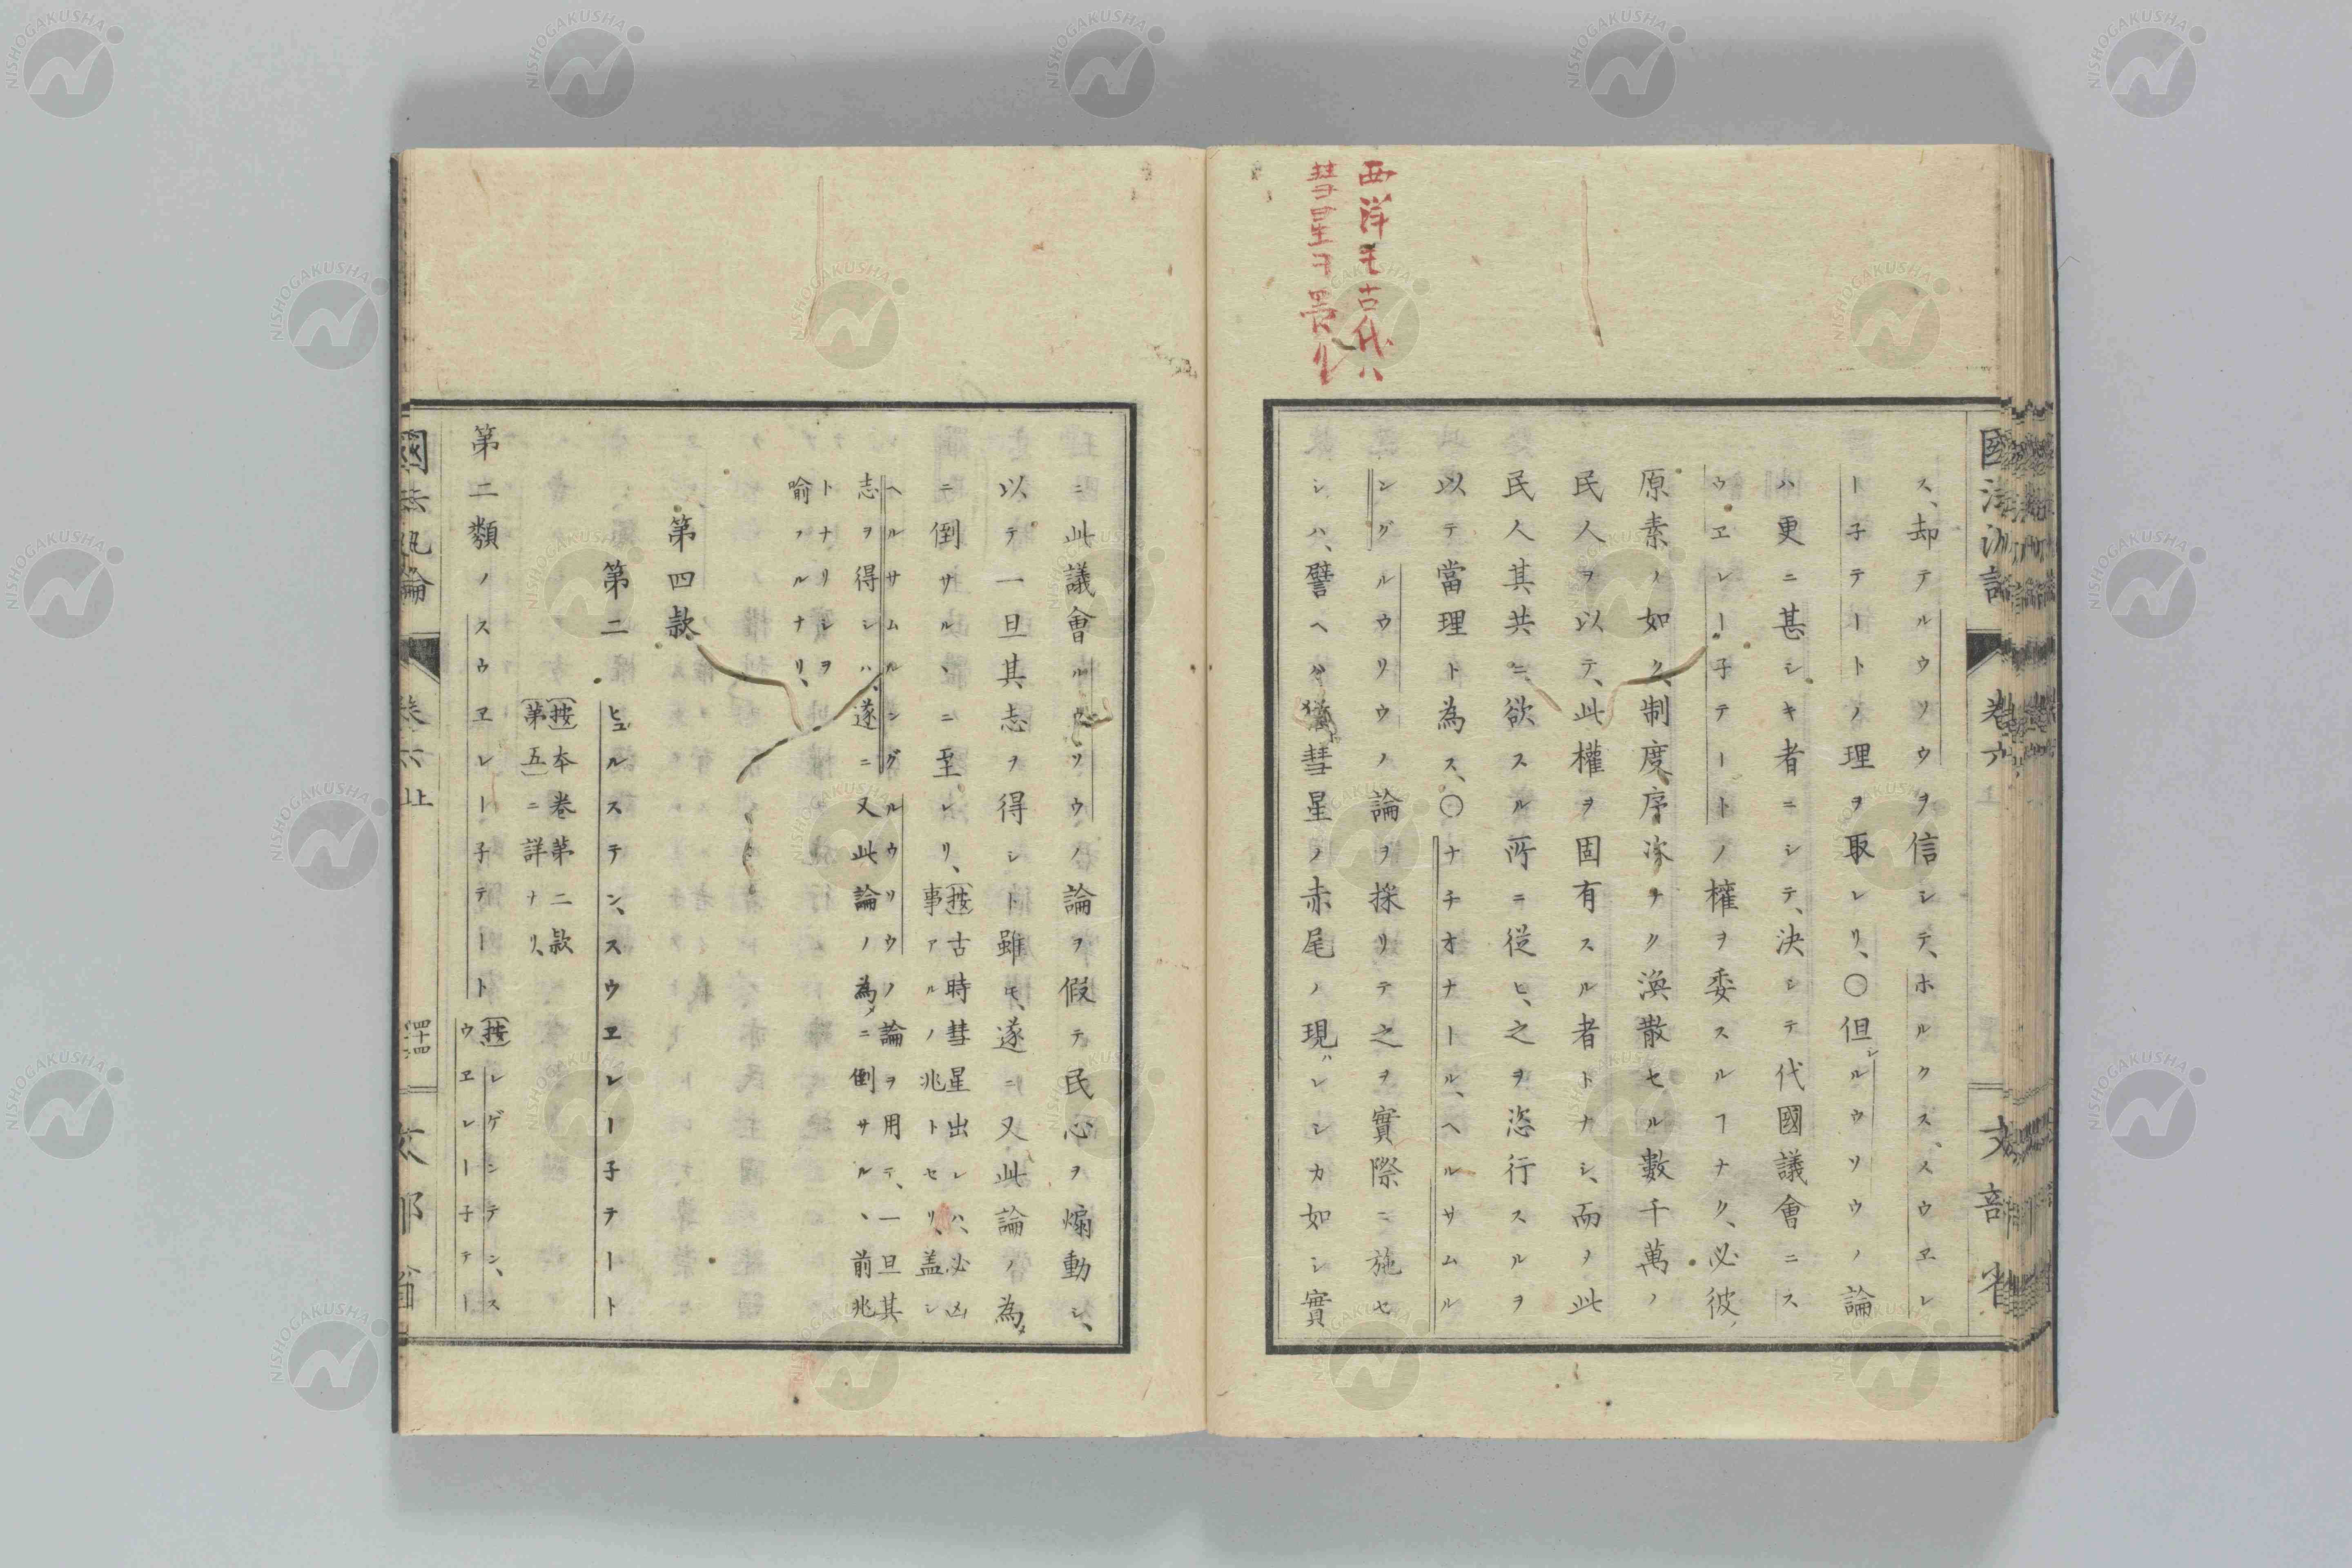 西洋モ古代ハ
彗星ヲ畏ル
ス、却テルウソウヲ信シテ、ホルクス、スウヱレ
ー子テートノ理ヲ取レリ、〇但シルウソウノ論
ハ更ニ甚シキ者ニシテ、決シテ代國議會ニス
ウヱレー子テートノ權ヲ委スルヿナク、必彼ノ
原素ノ如ク、制度序次ナク渙散セル數千萬ノ
民人ヲ以テ、此權ヲ固有スル者トナシ、而ヲ此
民人其共ニ欲スル所ニ從ヒ、之ヲ恣行スルヲ
以テ當理ト為ス、〇ナチオナール、ヘルサムル
ングルウソウノ論ヲ採リテ之ヲ實際ニ施セ
シハ、譬ヘハ猶彗星ノ赤尾ノ現ハレシカ如シ實
卷六
文部省
ニ此議會ルウソウノ論ヲ假テ民心ヲ煽動シ、
以テ一旦其志ヲ得シト雖モ、遂ニ又此論ノ為メ
ニ倒サルヽニ至レリ、
按古時彗星出レハ、必凶
事アルノ兆トセリ、盖シ
ヘルサムルングルウソウノ論ヲ用テ、一旦其
志ヲ得シハ、遂ニ又此論ノ為メニ倒サルヽ前兆
トナリシヲ
喻フルナリ、
第四款
第二 ヒュルステン、スウヱレー子テート
按本卷第二款
第五ニ詳ナリ、
第二類ノスウヱレー子テート
按レゲンテン、ス
ウヱレー子テー
國法汎論
卷六上
四十四
文部省
NISHOGAKUSHA